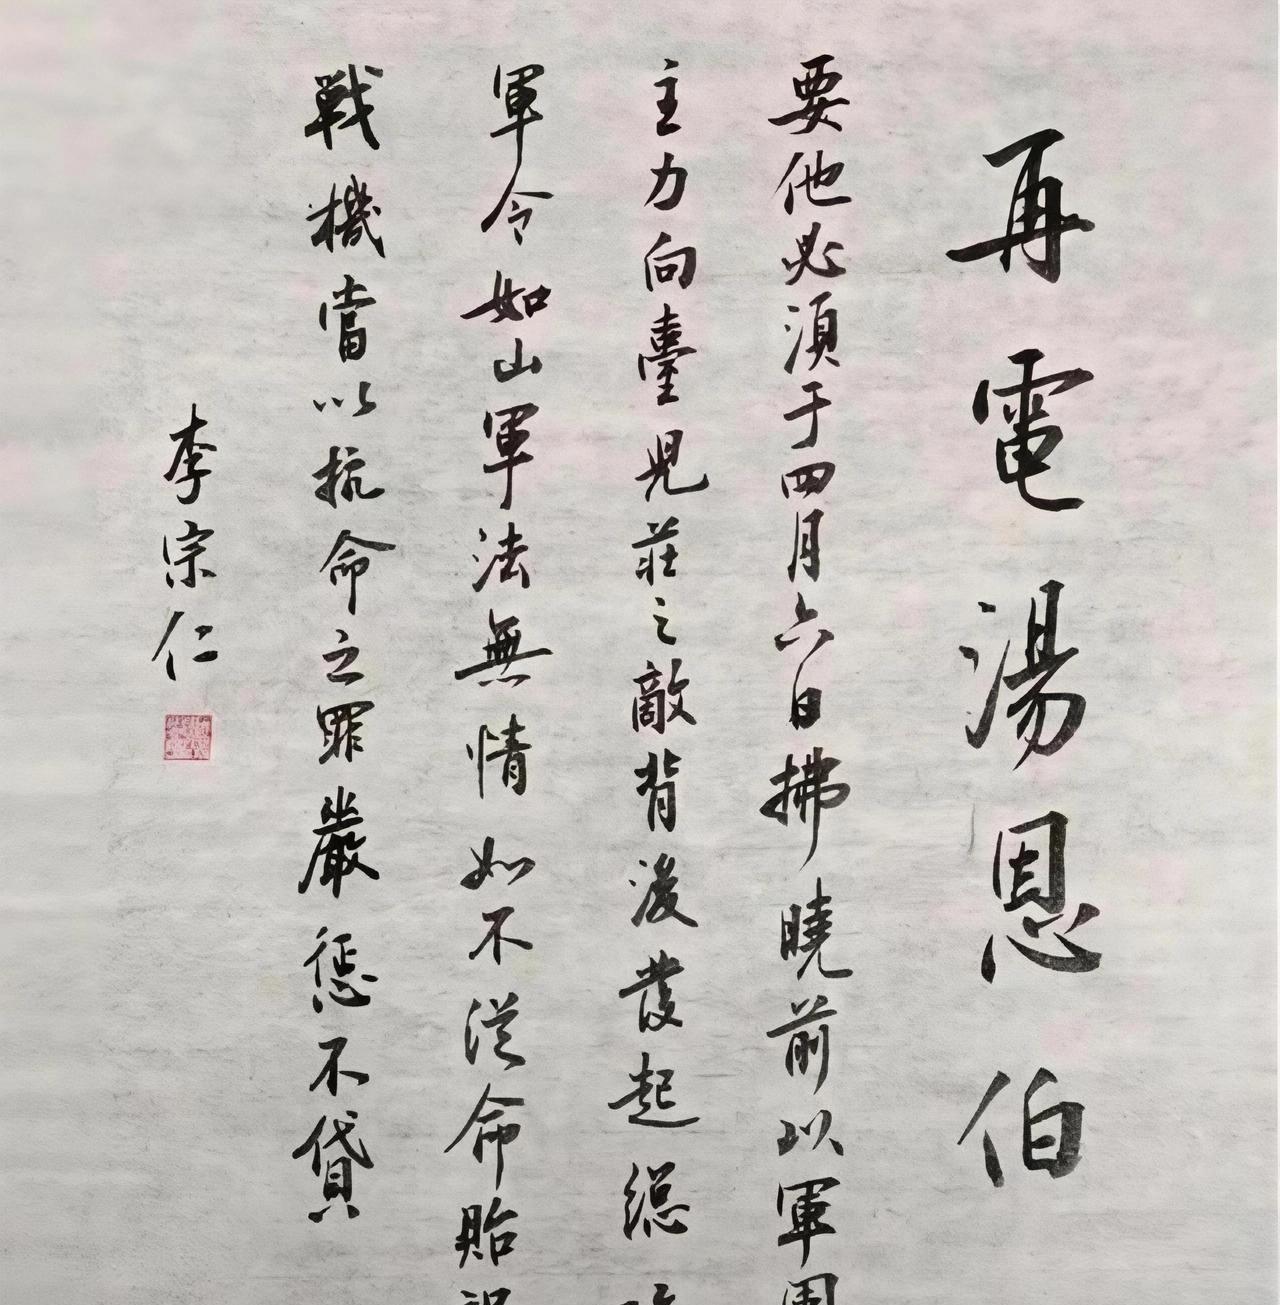 再電湯恩伯
要他必須于四月六日拂曉前以軍團
主力向臺兒莊之敵背後發起總
軍令如山軍法無情如不從命貽
戰機當以抗命之罪嚴懲不貸
李宗仁